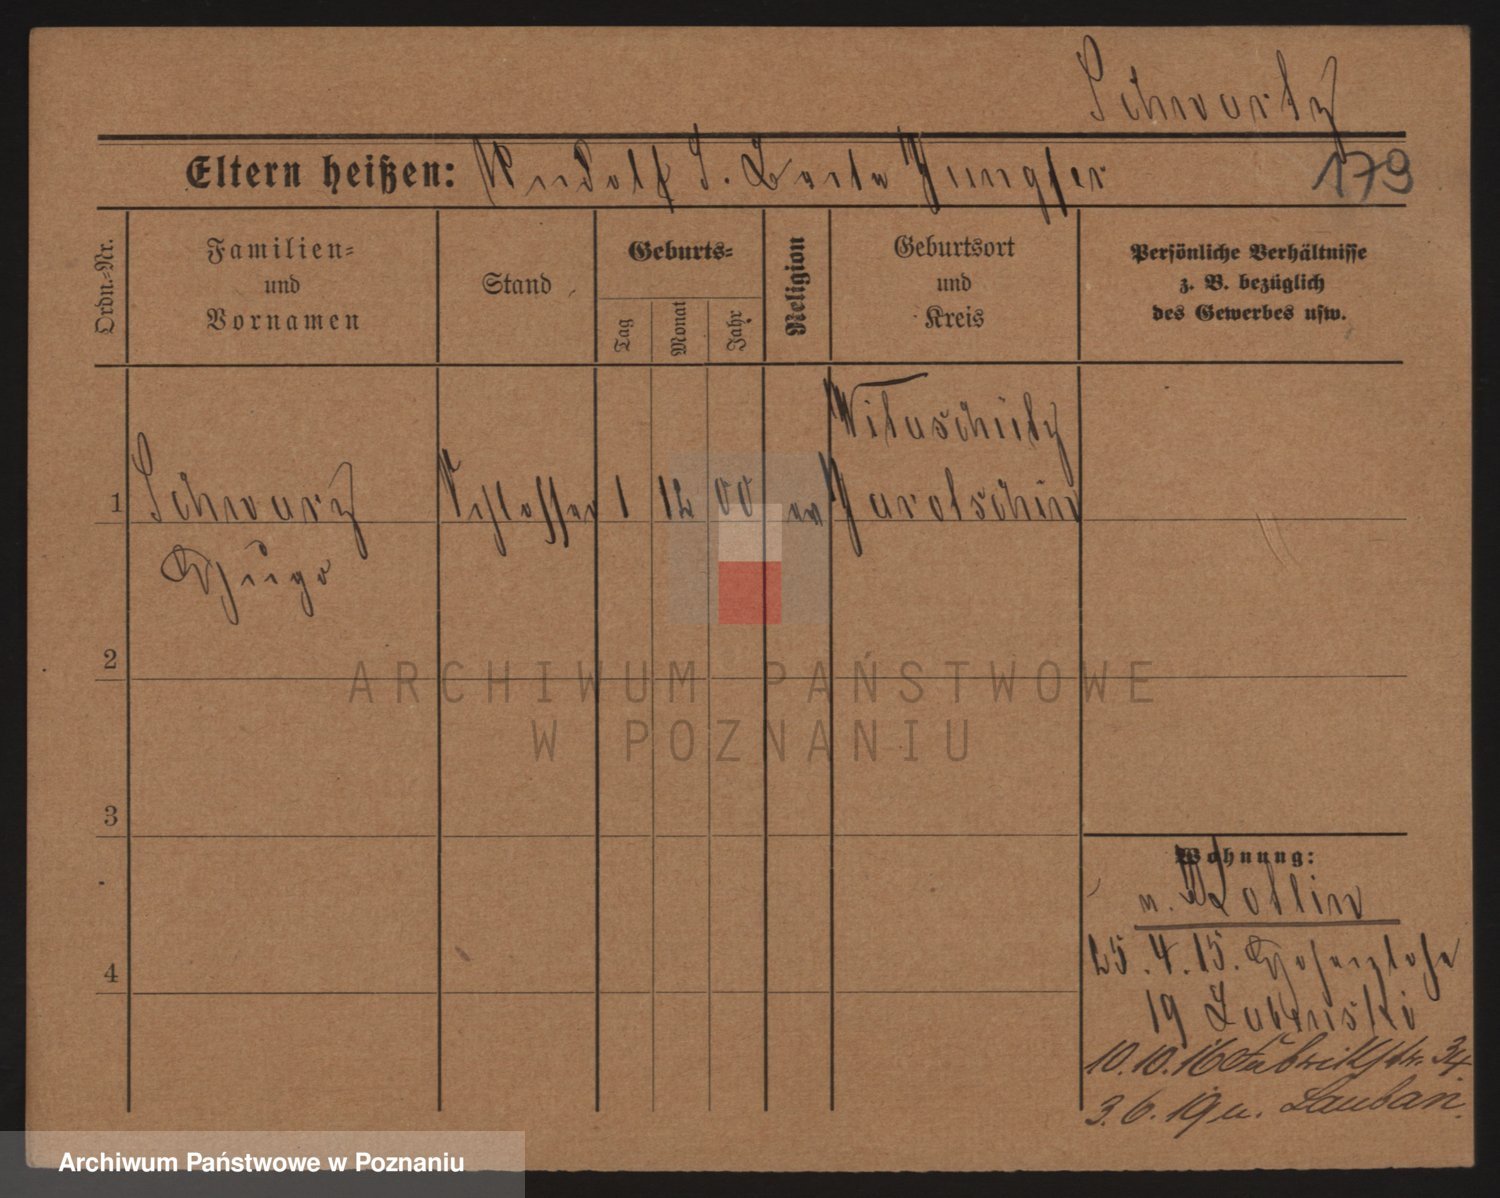 Schwartz
Eltern heißen: Rudolf S. Berta Jungfer 179
Ordn.-Nr.
Familien-
und
Vornamen
Stand
Geburts-
Tag
Monat
Jahr
Religion
Geburtsort
und
Kreis
Persönliche Verhältnisse
z. B. bezüglich
des Gewerbes usw.
Witaschütz
1 Schwarz Schlosser 1 12 00 ev Jarotschin
Hugo
2
3
4
Wohnung:
n. Kollin
25.4.15. Hohenlohe
19 Lubinski
10.10.16 Fabrikstr. 34
3.6.19 n. Lauban.
ARCHIWUM PAŃSTWOWE
W POZNANIU
Archiwum Państwowe w Poznaniu